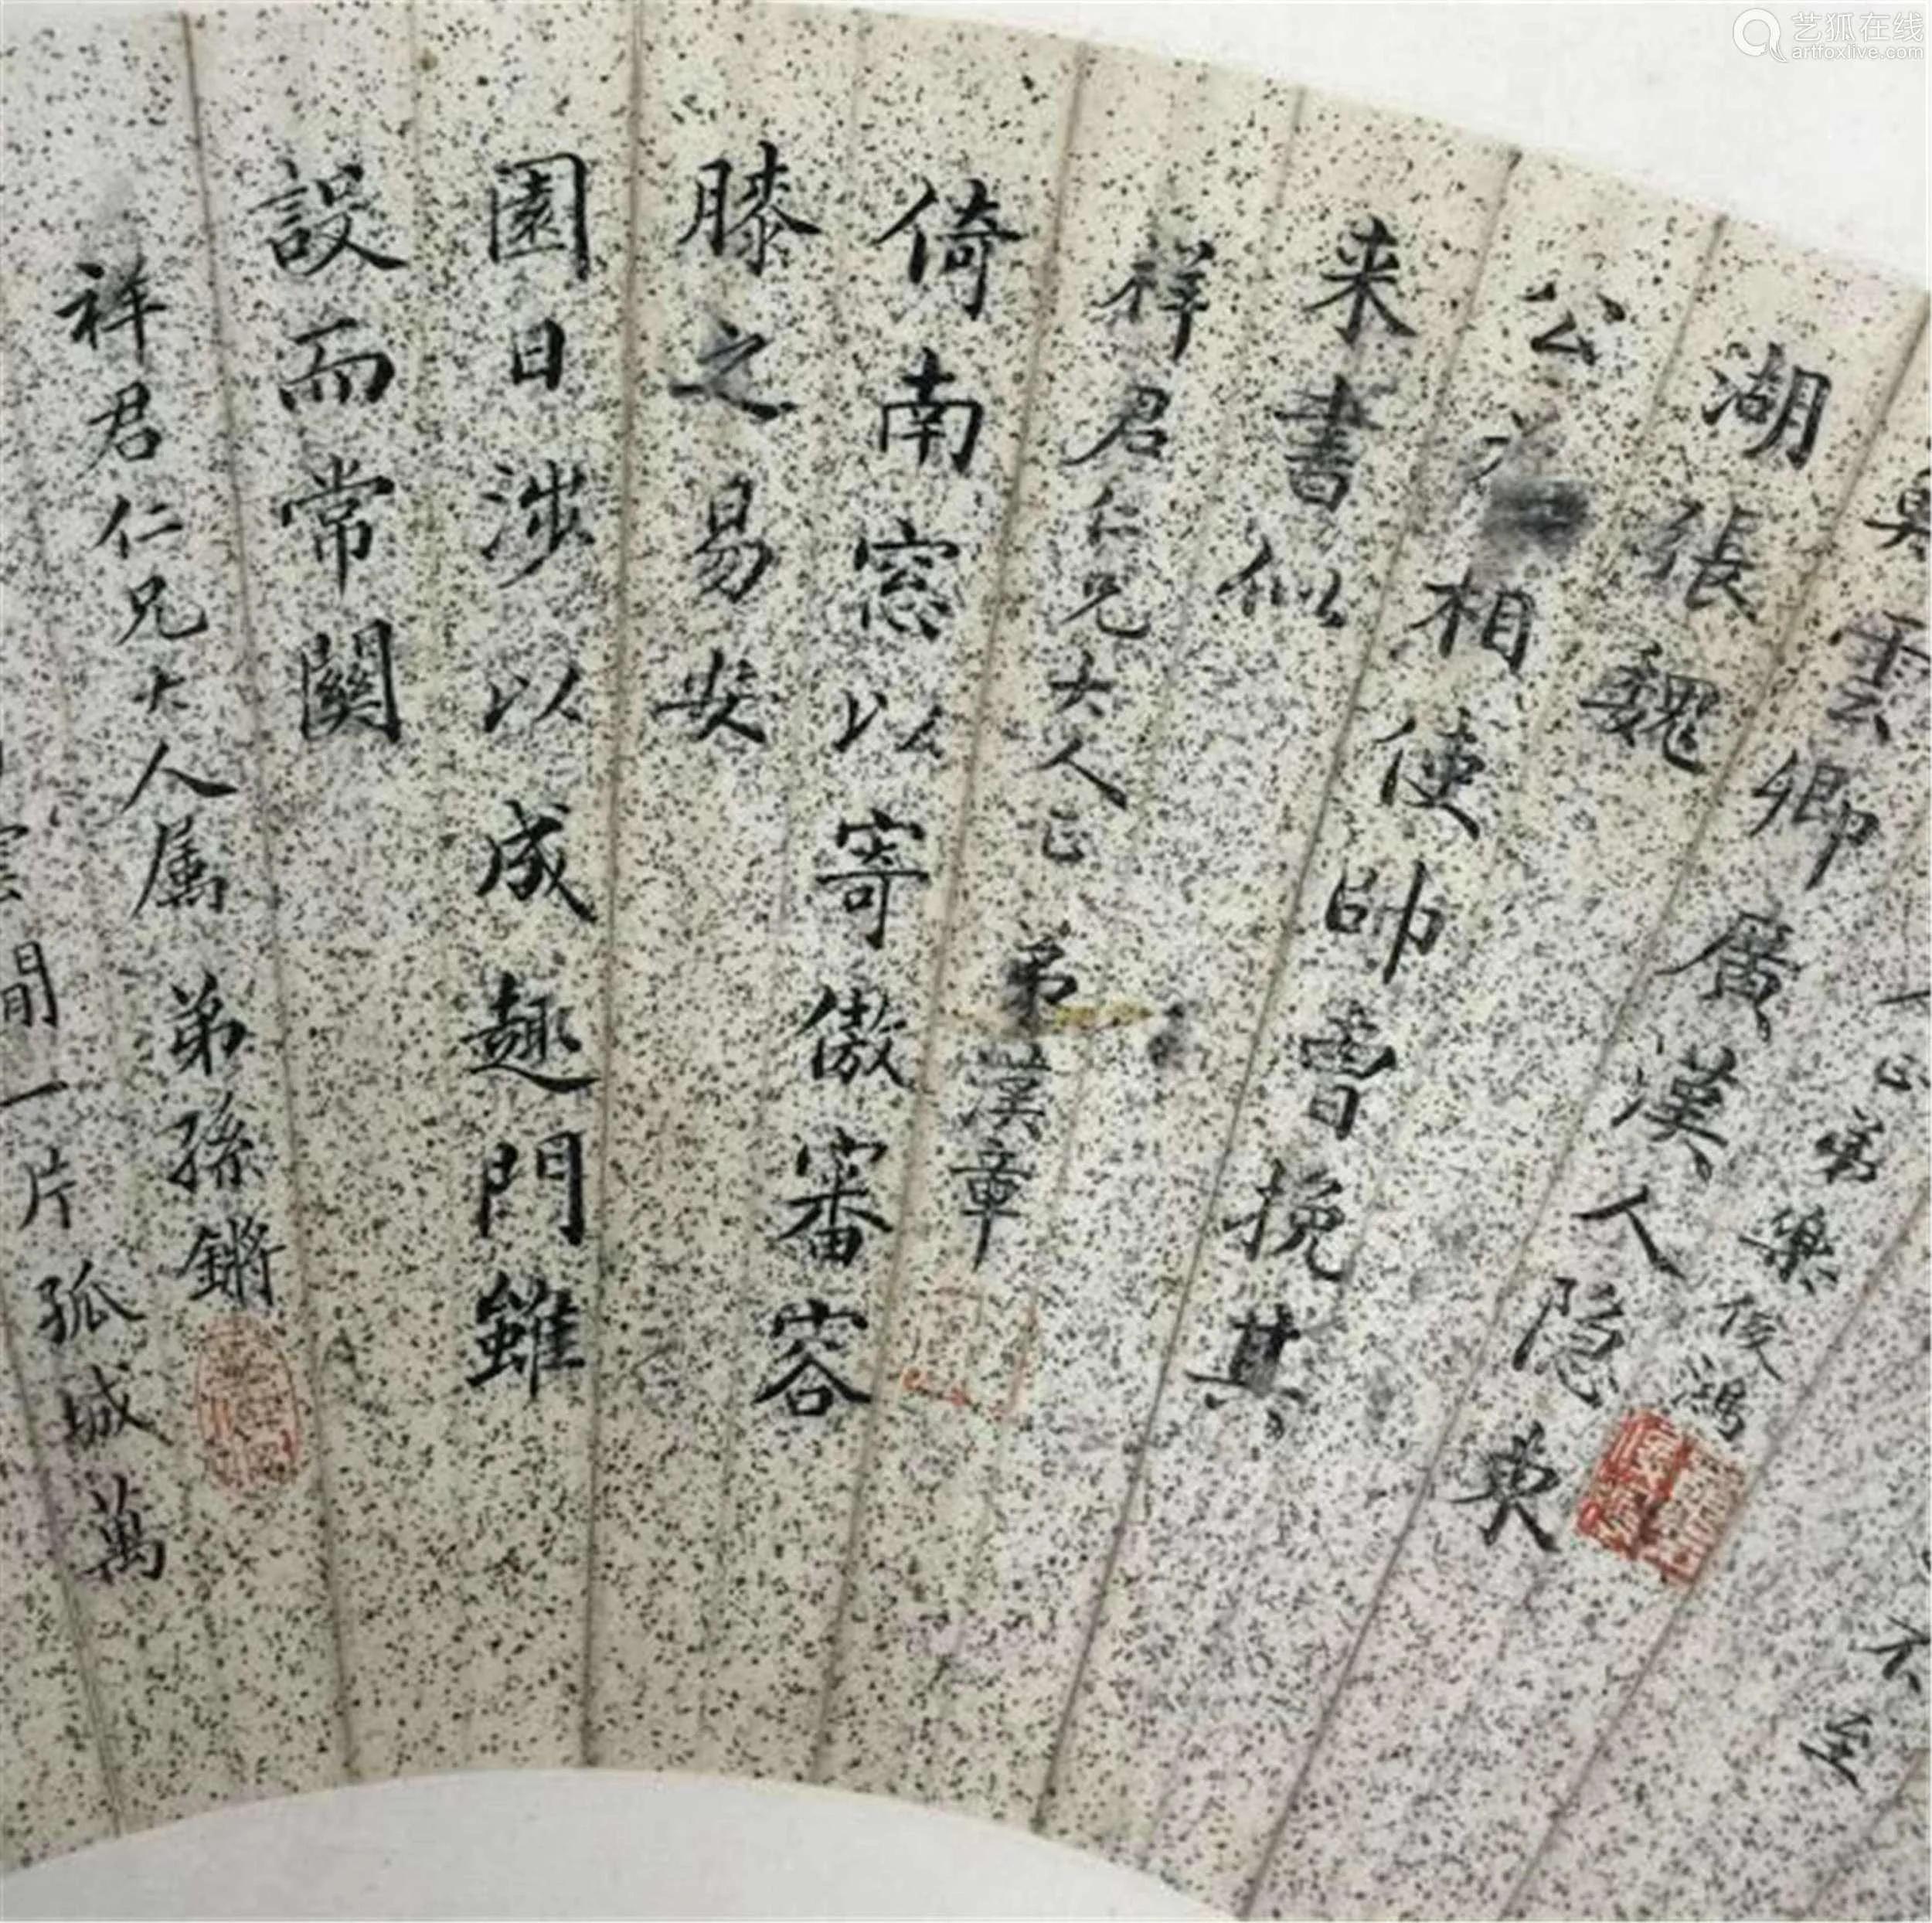 艺狐在线
artfoxlive.com
不至
雲卿廣漢人隐東
弟樂俊鴻
湖張魏
公
相使帥曾挽其
来書似
祥君仁兄大人正
弟漢章
倚南窓以寄傲審容
膝之易安
園日涉以成趣門雖
設而常關
祥君仁兄大人属
弟孫鏘
間一片孤城萬